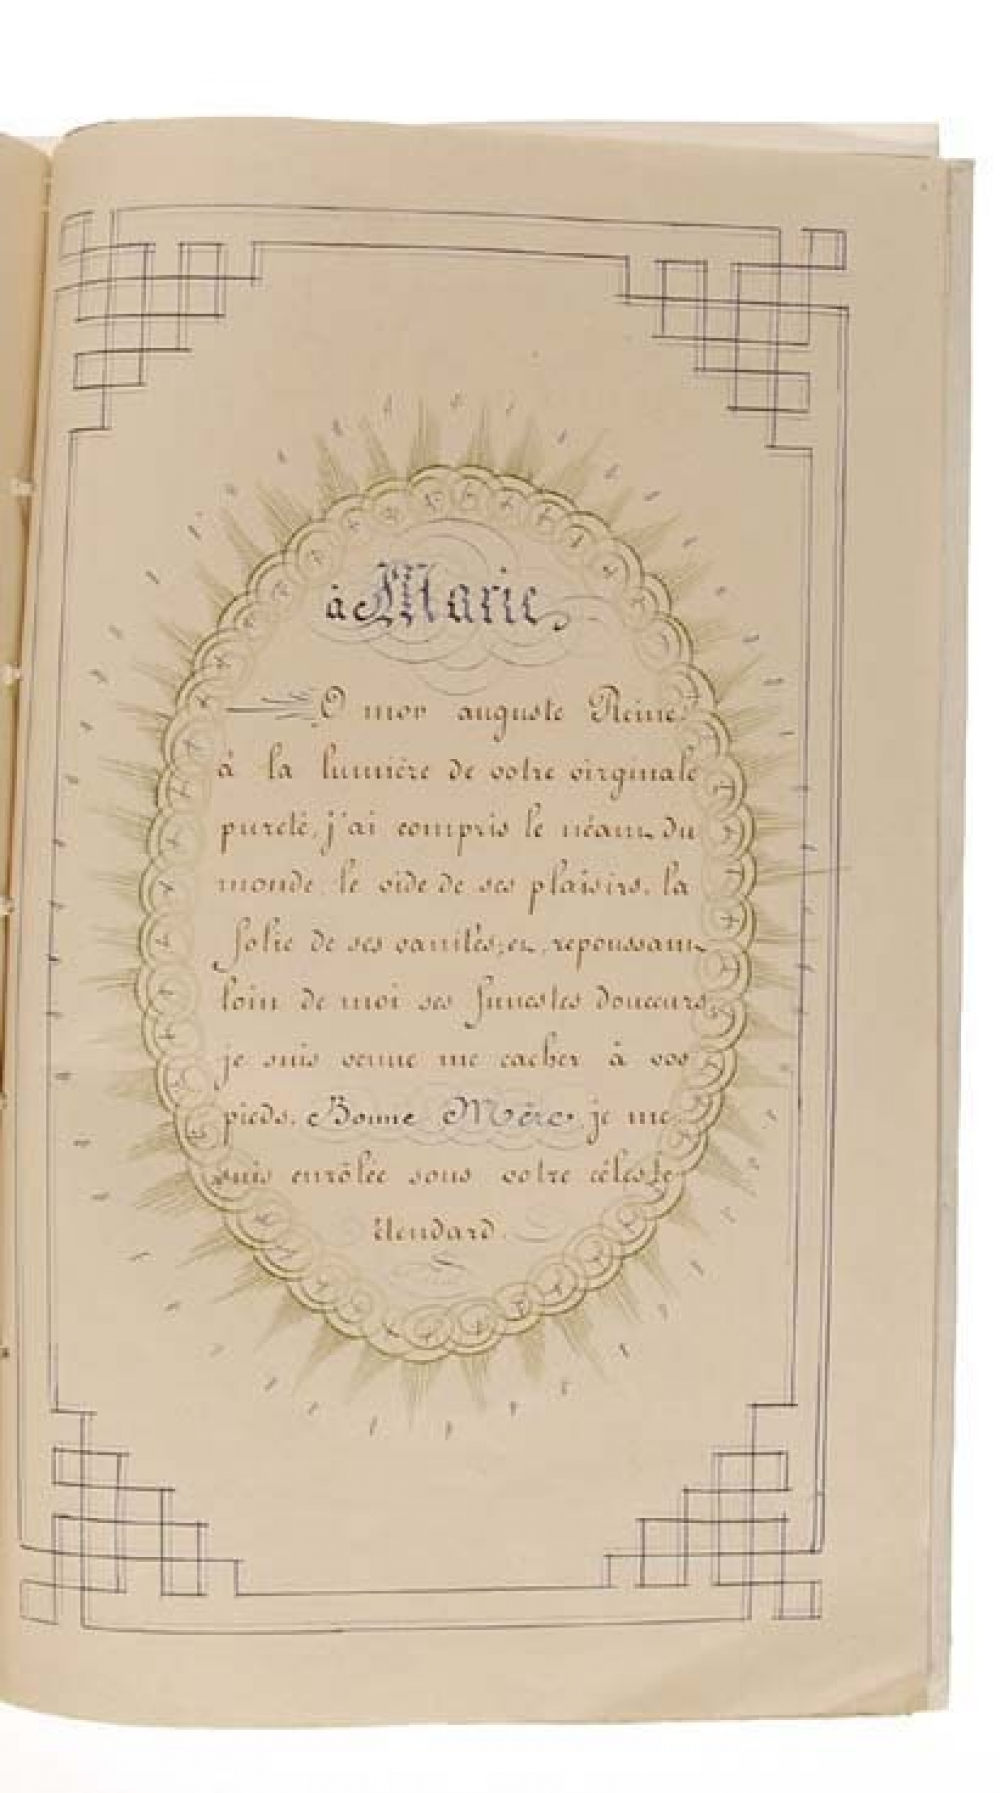 à Marie
O mon auguste Reine,
à la lumière de votre virginale
pureté, j'ai compris le néant du
monde, le vide de ses plaisirs, la
folie de ses vanités; et, repoussant
loin de moi ses funestes douceurs,
je suis venue me cacher à vos
pieds. Bonne Mère, je me
suis enrôlée sous votre céleste
étendard.